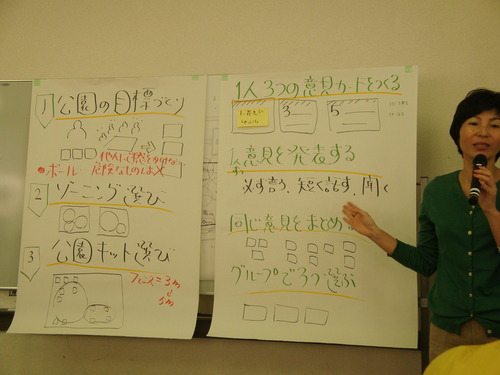 1 公園の目標づくり
他人に迷惑をかけない
●ボール 危険なものは×
2 ゾーニング遊び
3 公園キット遊び
フェンス=3m
↓
5m
1人3つの意見カードをつくる
3
5
意見を発表する
必ず言う、短く話す、聞く
同じ意見をまとめ
グループで3つ選ぶ